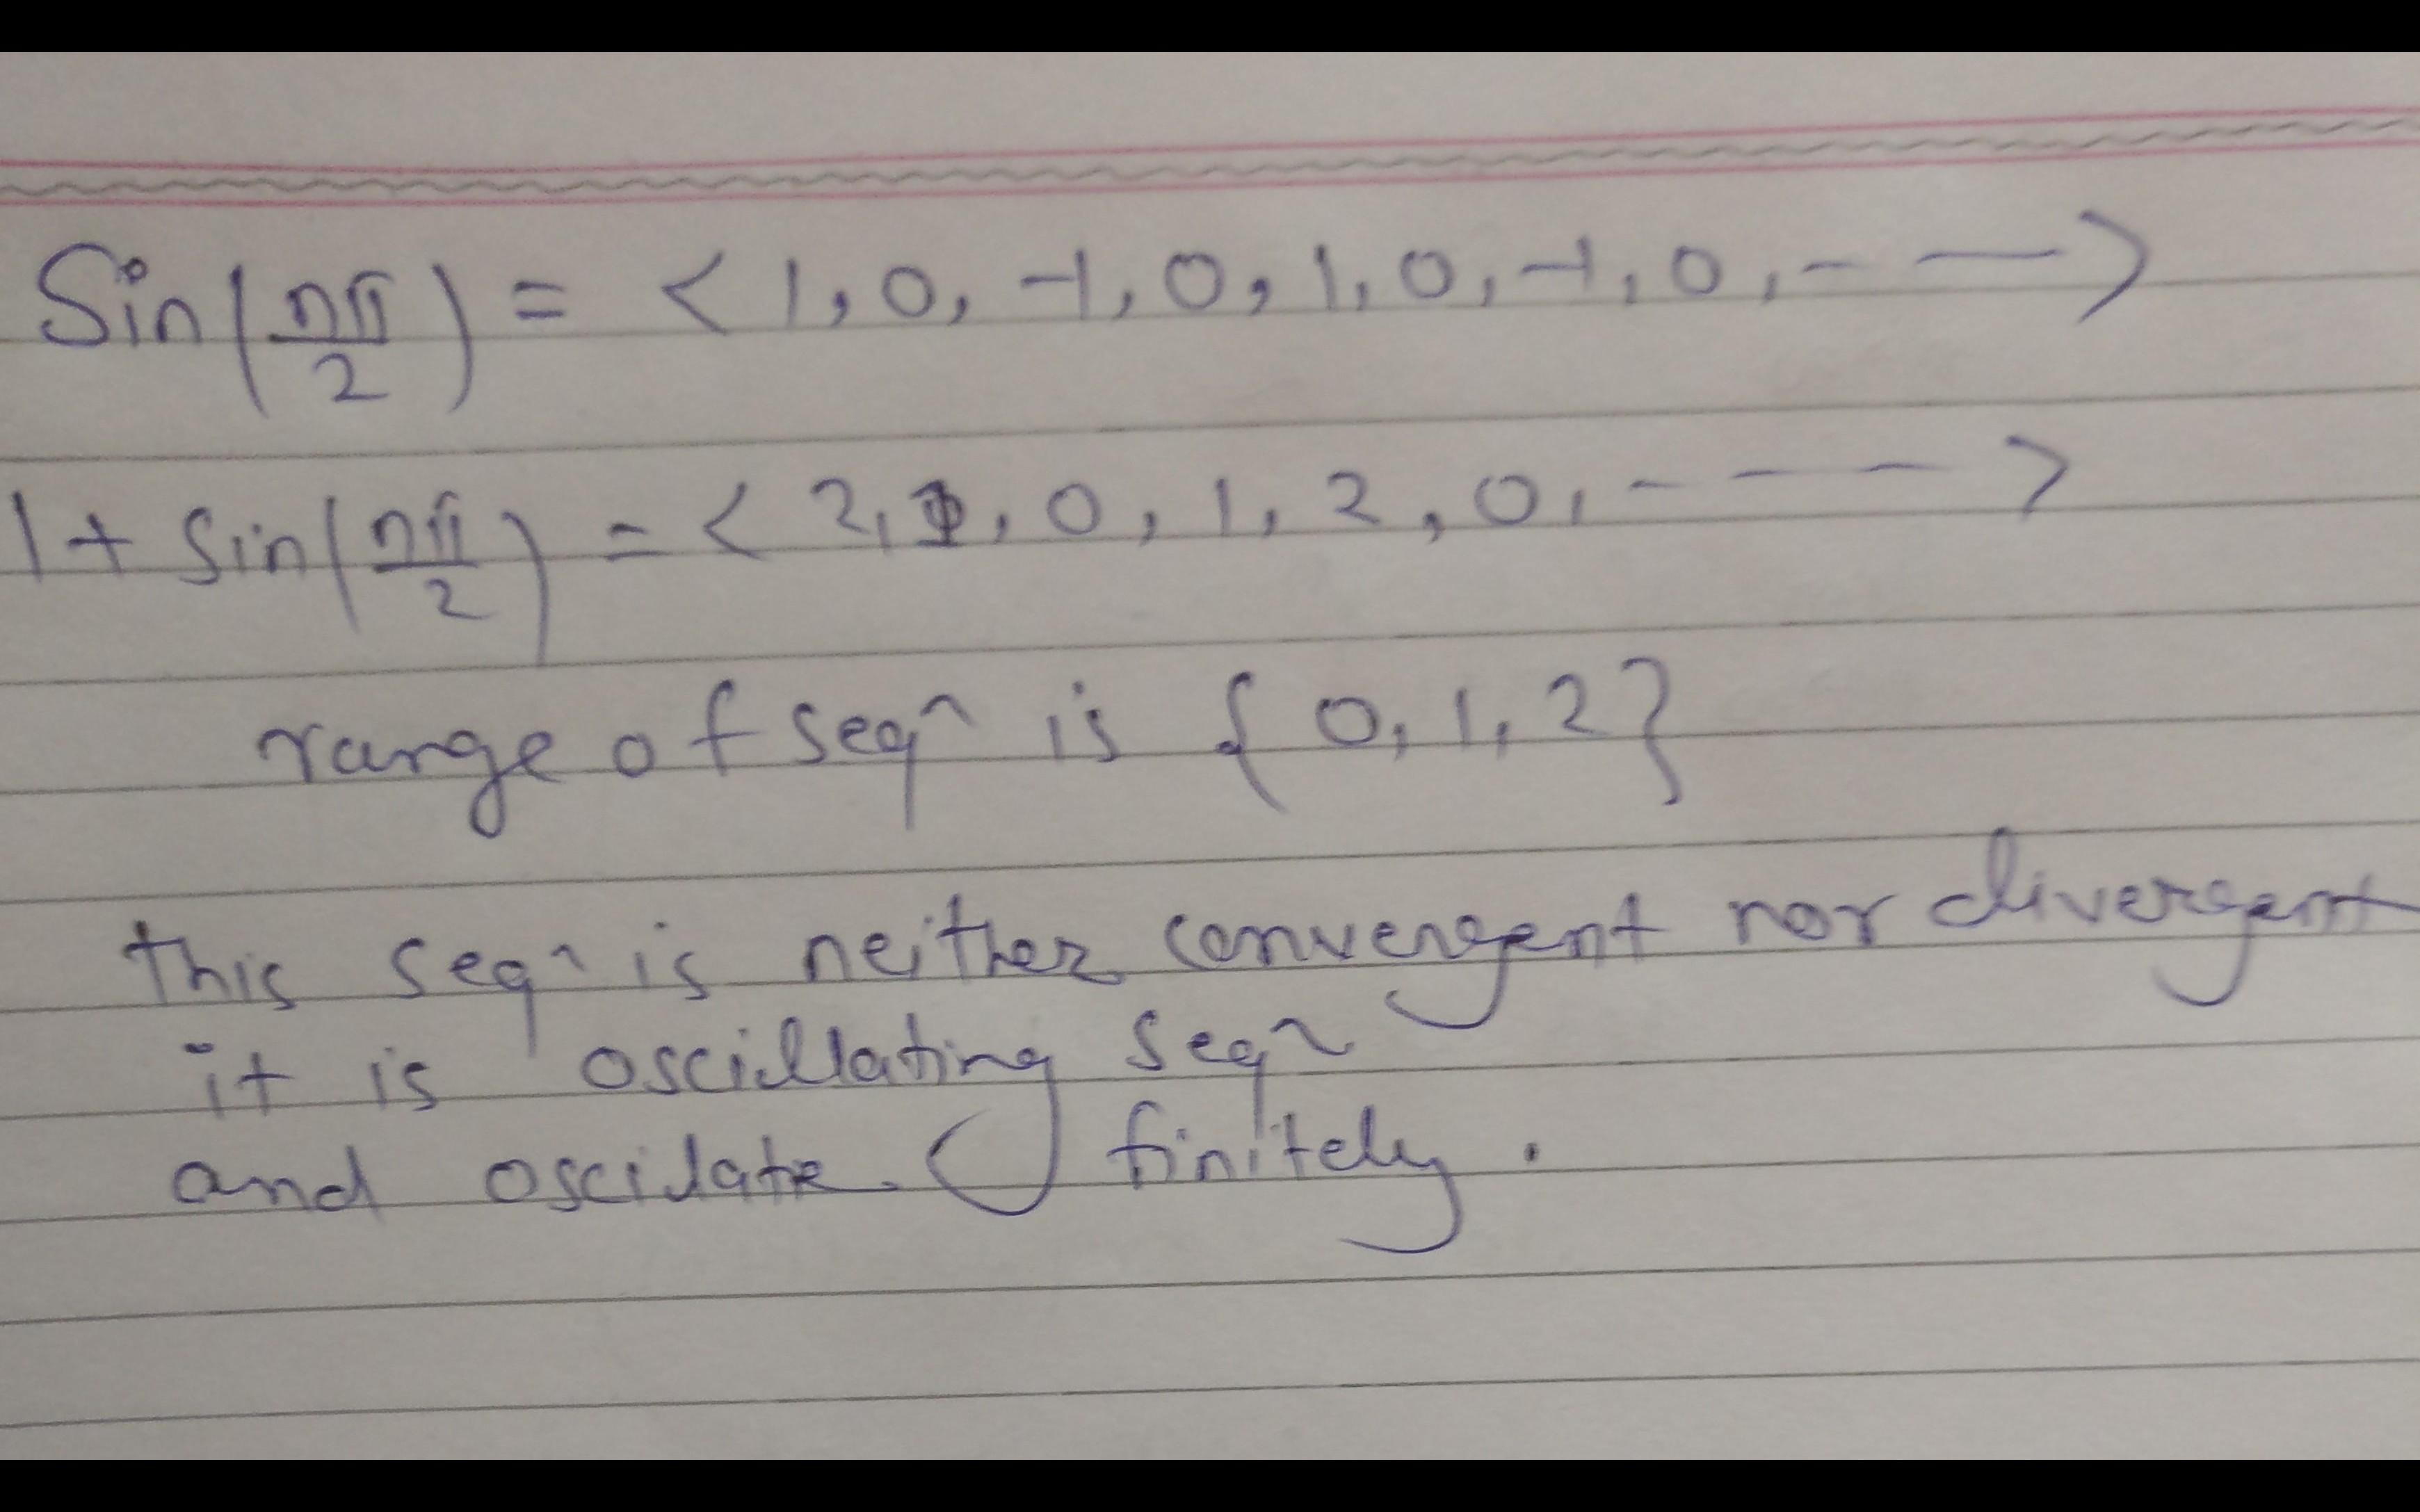 Sin(nπ/2) = < 1, 0, -1, 0, 1, 0, -1, 0, - — >
1 + Sin(nπ/2) = < 2, 1, 0, 1, 2, 0, - - - - >
range of seqⁿ is { 0, 1, 2 }
this seqⁿ is neither convergent nor divergent
it is oscillating seqⁿ
and oscilate finitely .